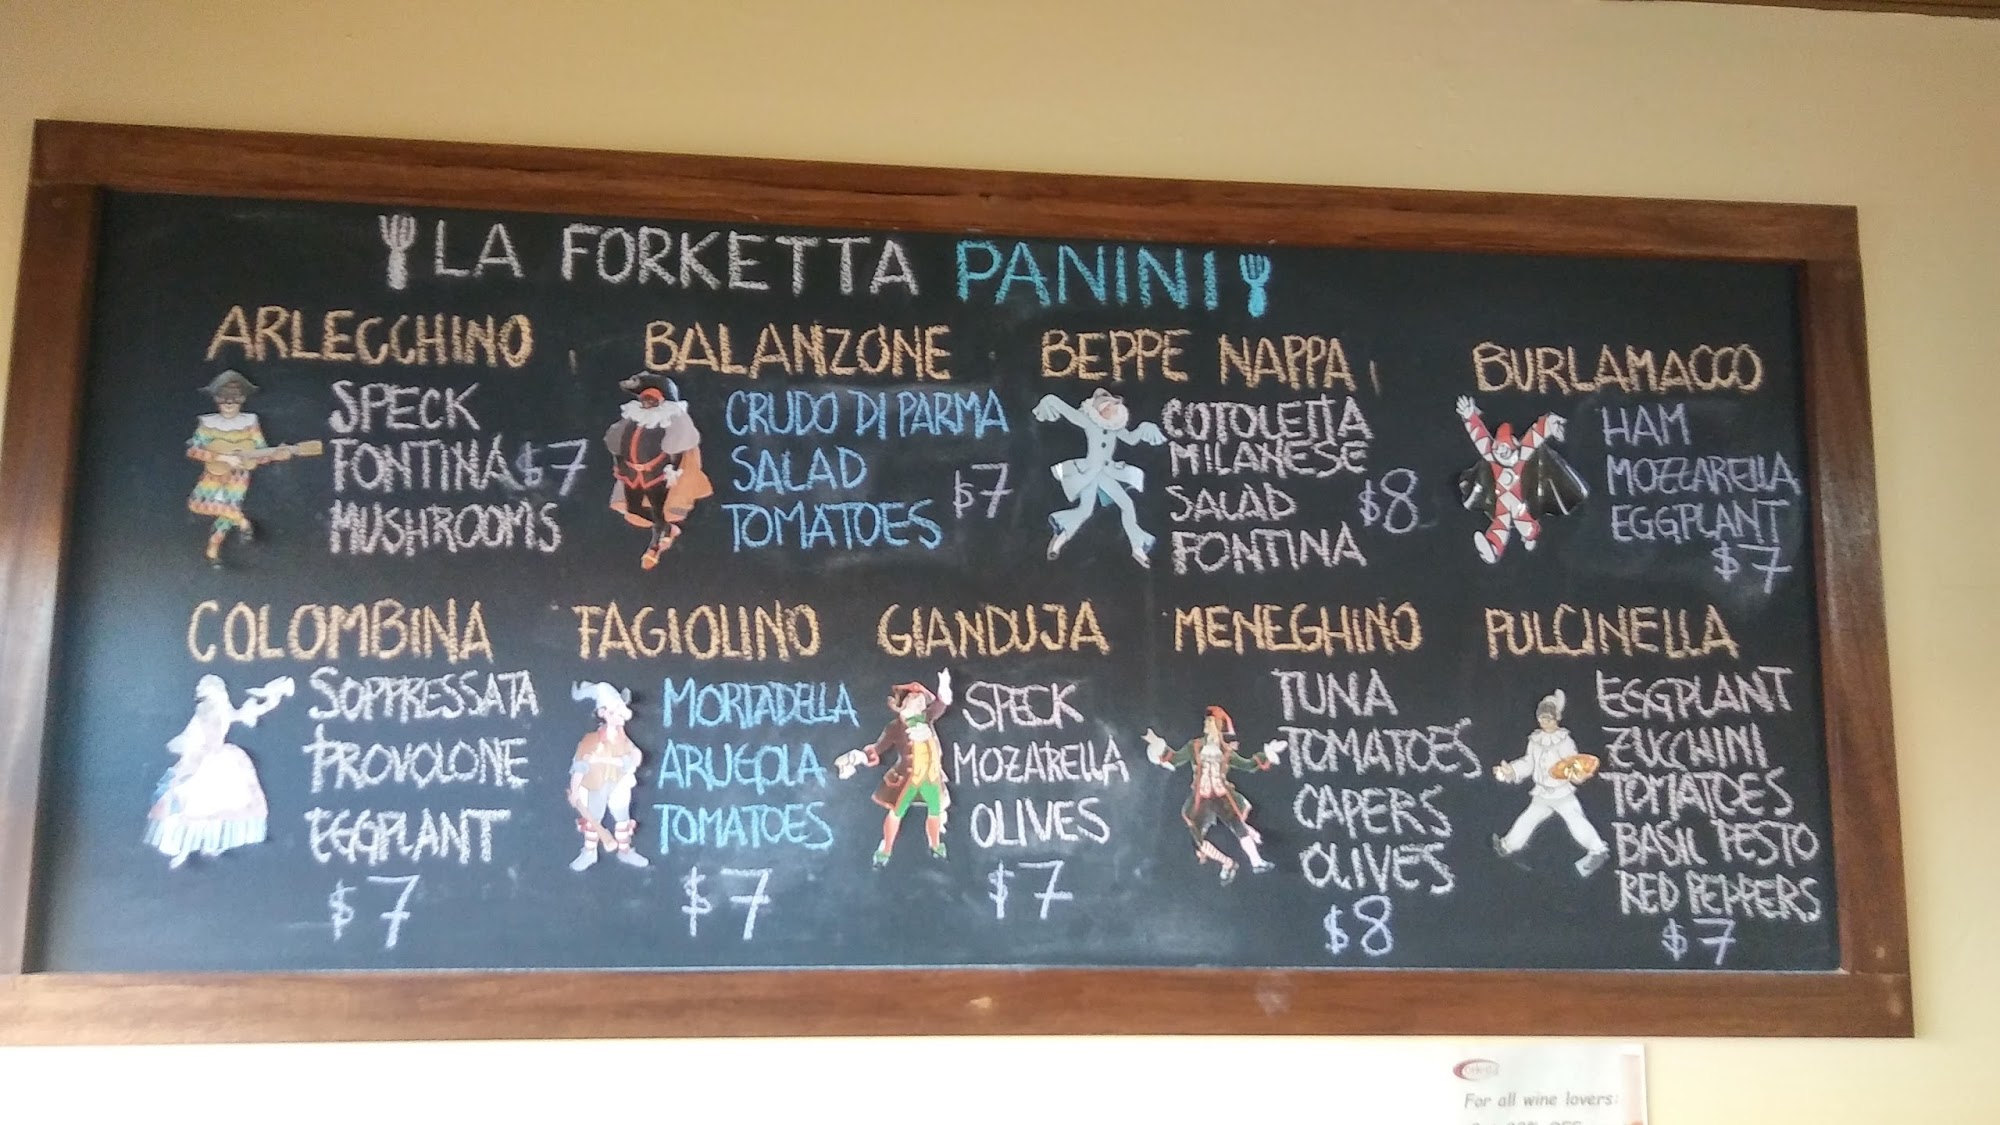 LA FORKETTA PANINI
ARLECCHINO
SPECK
FONTINA $7
MUSHROOMS
BALANZONE
CRUDO DI PARMA
SALAD
$7
TOMATOES
BEPPE NAPPA
COTOLETTA
MILANESE
SALAD
$8
FONTINA
BURLAMACCO
HAM
MOZZARELLA
EGGPLANT
$7
COLOMBINA
SOPPRESSATA
PROVOLONE
EGGPLANT
$7
FAGIOLINO
MORTADELLA
ARUGOLA
TOMATOES
$7
GIANDUJA
SPECK
MOZARELLA
OLIVES
$7
MENEGHINO
TUNA
TOMATOES
CAPERS
OLIVES
$8
PULCINELLA
EGGPLANT
ZUCCHINI
TOMATOES
BASIL PESTO
RED PEPPERS
$7
For all wine lovers: